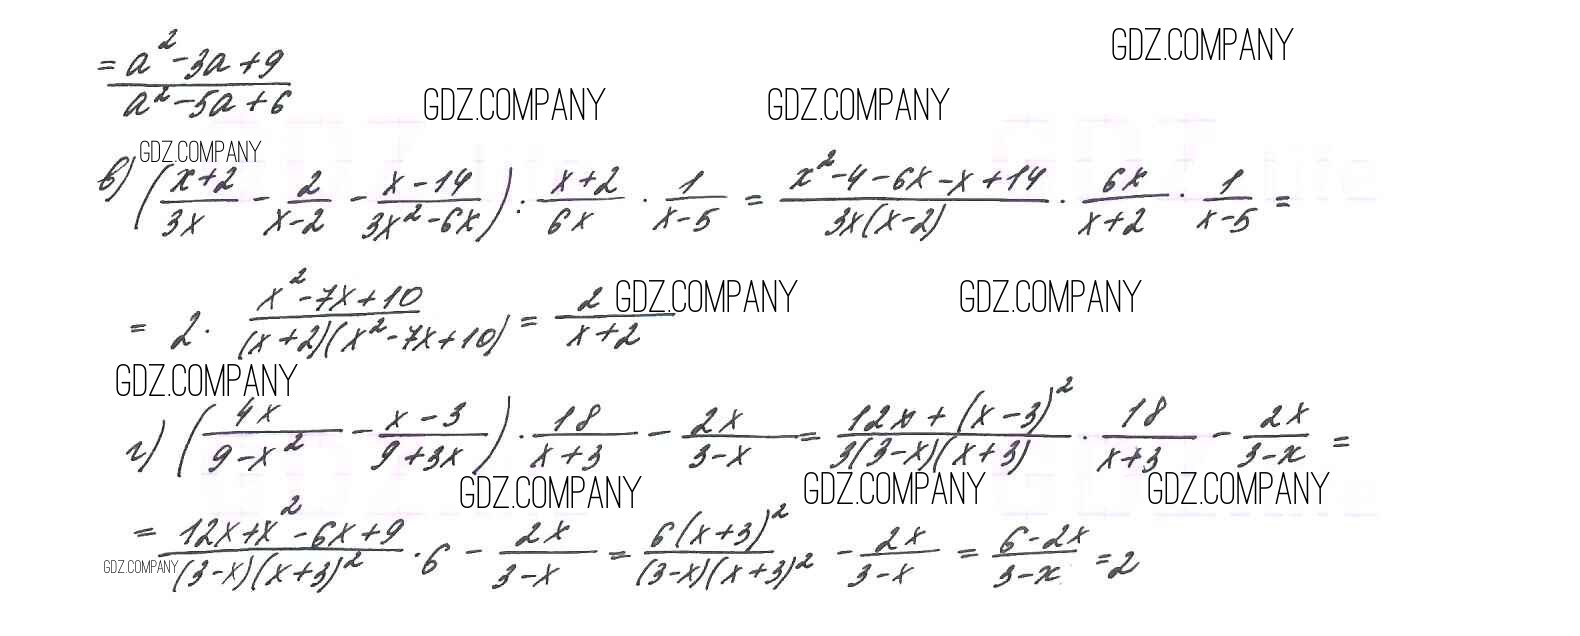 = (a² - 3a + 9)/(a² - 5a + 6)
GDZ.COMPANY
GDZ.COMPANY GDZ.COMPANY
GDZ.COMPANY
в) ((x+2)/(3x) - 2/(x-2) - (x-14)/(3x²-6x)) : (x+2)/(6x) · 1/(x-5) = (x²-4-6x-x+14)/(3x(x-2)) · 6x/(x+2) · 1/(x-5) =
= 2 · (x²-7x+10)/((x+2)(x²-7x+10)) = 2/(x+2)
GDZ.COMPANY GDZ.COMPANY
GDZ.COMPANY
г) (4x/(9-x²) - (x-3)/(9+3x)) · 18/(x+3) - 2x/(3-x) = (12x+(x-3)²)/(3(3-x)(x+3)) · 18/(x+3) - 2x/(3-x) =
GDZ.COMPANY GDZ.COMPANY GDZ.COMPANY
= (12x+x²-6x+9)/((3-x)(x+3)²) · 6 - 2x/(3-x) = 6(x+3)²/((3-x)(x+3)²) - 2x/(3-x) = (6-2x)/(3-x) = 2
GDZ.COMPANY